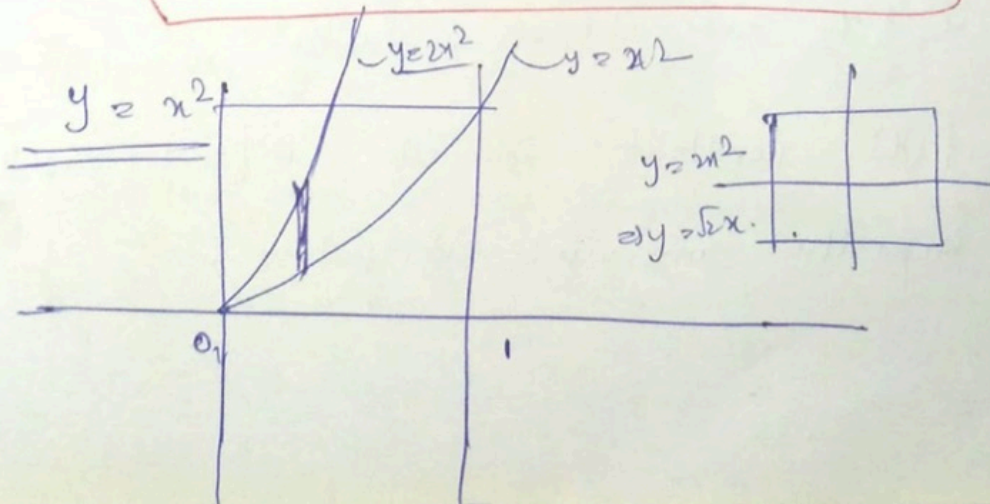 y = 2x²
y = x²
y = x²
y = 2x²
⇒ y = √2x.
0,
1